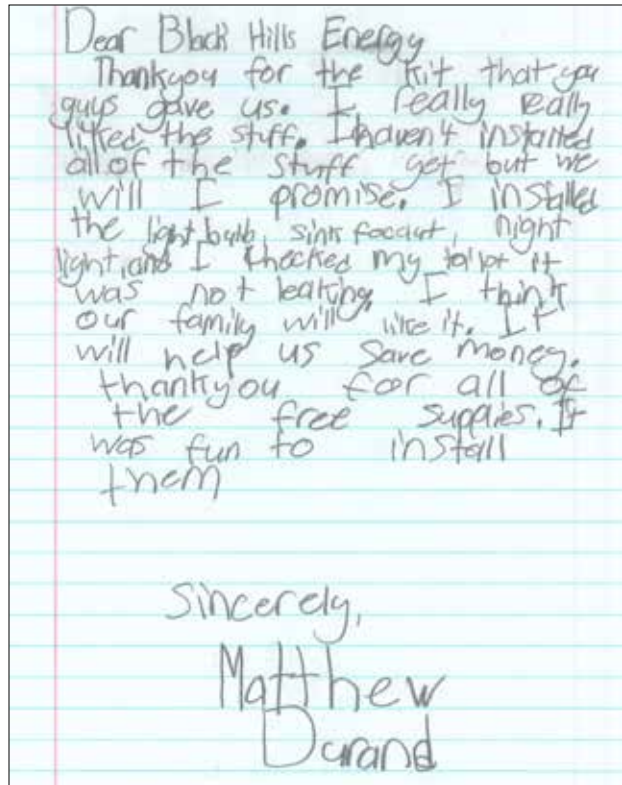 Dear Black Hills Energy
Thankyou for the kit that you
guys gave us. I really really
licked the stuff. I haven't installed
all of the stuff yet but we
will I promise. I installed
the light bulb, sink focaut, night
light, and I checked my toilot it
was not leaking. I think
our family will like it. It
will help us save money.
thankyou for all of
the free supplies. It
was fun to install
them
Sincerely,
Matthew
Durand